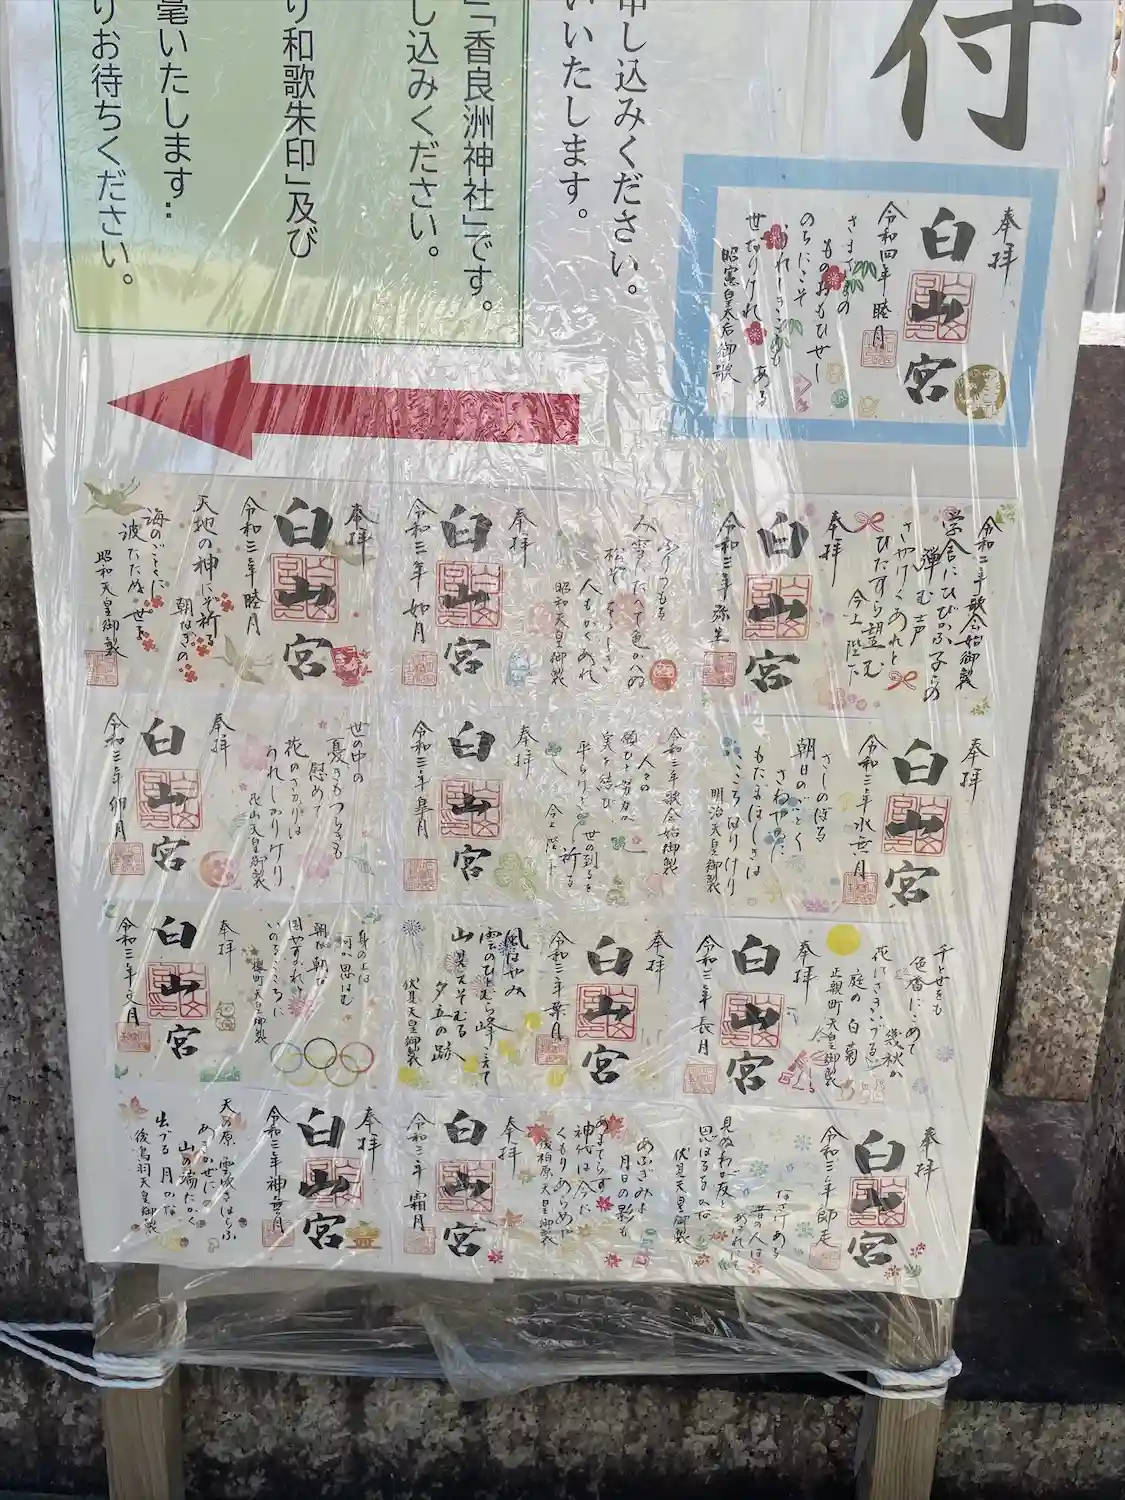 付
申し込みください。
いいたします。
「香良洲神社」です。
し込みください。
り和歌朱印」及び
毫いたします
りお待ちください。
奉拝
白山宮
令和四年睦月
さまざまの
ものおもひせし
のちにこそ
うれしきことも
ある
世なりけれ
昭憲皇太后御歌
令和二年歌会始御製
学舎にひびかふ子らの
弾む声
さやけくあれと
ひたすら望む
今上陛下
奉拝
白山宮
令和三年弥生
ふりつもる
み雪にたへて色かへぬ
松ぞををしき
人もかくあれ
昭和天皇御製
奉拝
白山宮
令和三年如月
奉拝
白山宮
令和三年睦月
天地の神にぞ祈る
朝なぎの
海のごとくに
波たたぬ世を
昭和天皇御製
奉拝
白山宮
令和三年水無月
さしのぼる
朝日のごとく
さわやかに
もたまほしきは
こころなりけり
明治天皇御製
令和三年歌会始御製
人々の
願ひと努力が
実を結び
平らけき世の到るを
祈る
今上陛下
奉拝
白山宮
令和三年皐月
世の中の
憂きもつらきも
慰めて
花のさかりは
うれしかりけり
花山天皇御製
奉拝
白山宮
令和三年卯月
千とせをも
色香にこめて
幾秋か
花にさきいづる
庭の白菊
正親町天皇御製
奉拝
白山宮
令和三年長月
奉拝
白山宮
令和三年葉月
風はやみ
雲のひとむら峰こえて
山見えそむる
夕立の跡
伏見天皇御製
身の上は
何か思はむ
朝な朝な
国やすかれと
いのるこころに
桜町天皇御製
奉拝
白山宮
令和三年文月
奉拝
白山宮
令和三年師走
なさけある
昔の人は
あはれにて
見ぬわが友と
思はるるかな
伏見天皇御製
あふぎみよ
月日の影も
あまてらす
神代は今に
くもりあらめや
後柏原天皇御製
奉拝
白山宮
令和三年霜月
奉拝
白山宮
令和三年神無月
天の原
雲吹きはらふ
あきかぜに
山の端たかく
出づる月かな
後鳥羽天皇御製